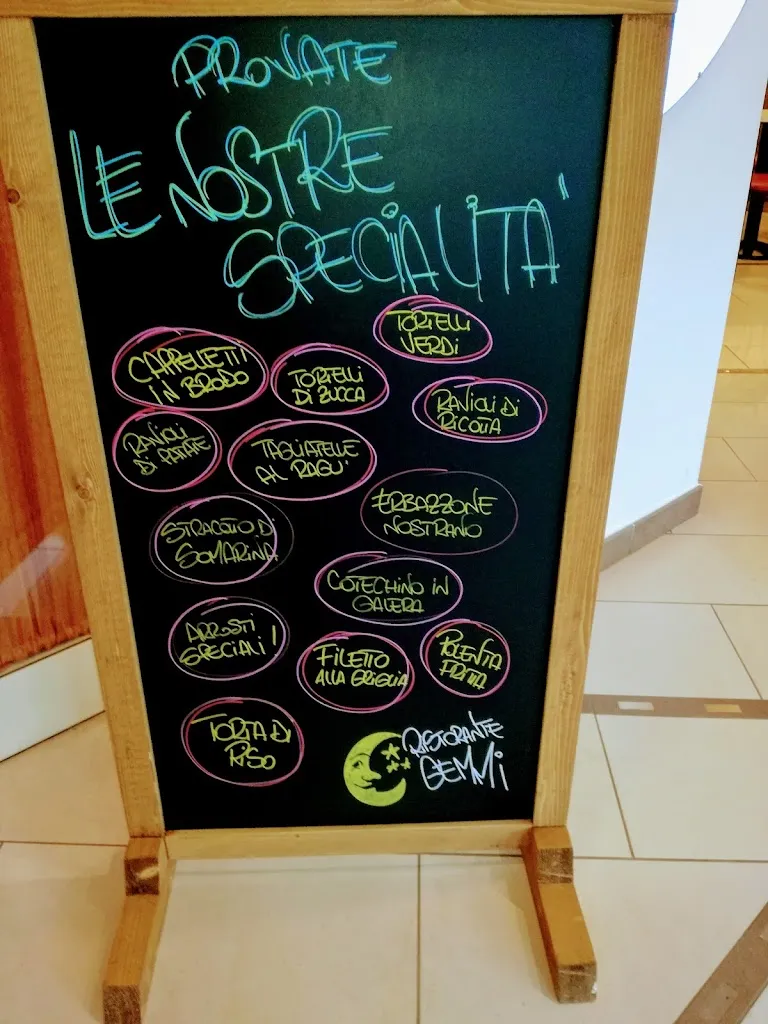 PROVATE
LE NOSTRE
SPECIALITA'
TORTELLI
VERDI
CAPPELLETTI
IN BRODO
TORTELLI
DI ZUCCA
RAVIOLI DI
RICOTTA
RAVIOLI
DI PATATE
TAGLIATELLE
AL RAGU'
ERBAZZONE
NOSTRANO
STRACOTTO DI
SOMARINA
COTECHINO IN
GALERA
ARROSTI
SPECIALI!
FILETTO
ALLA GRIGLIA
POLENTA
FRITTA
TORTA DI
RISO
RISTORANTE
GEMMI